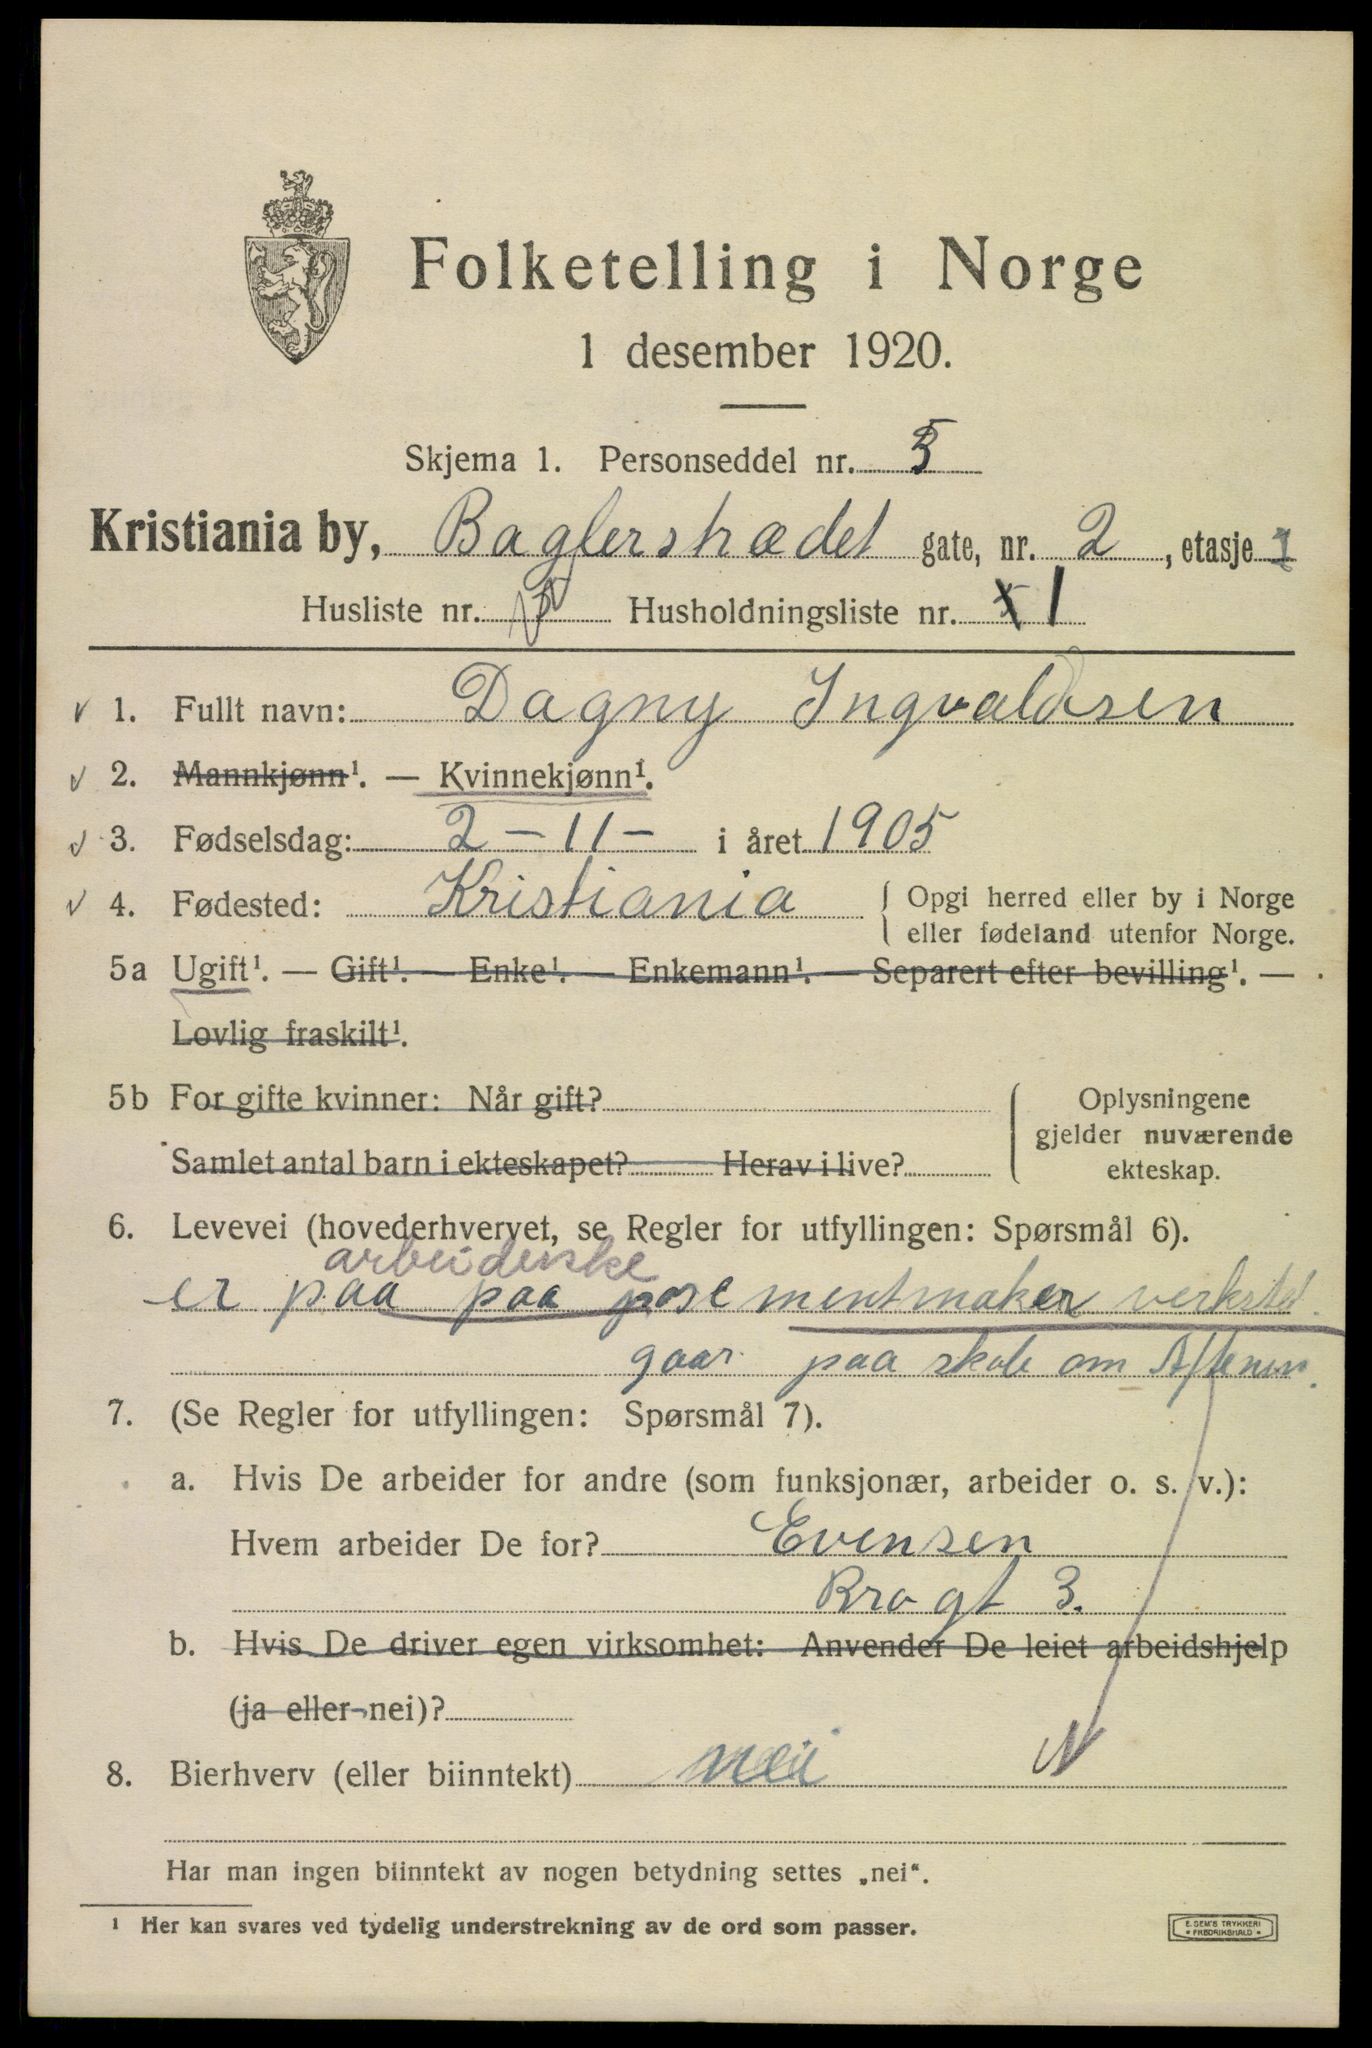 Folketelling i Norge
1 desember 1920.
Skjema 1. Personseddel nr.
Kristiania by, Baglerstrædet gate, nr. 2, etasje 1
Husliste nr. Husholdningsliste nr. 1
1. Fullt navn: Dagny Ingvaldsen
2. Mannkjønn¹. — Kvinnekjønn¹.
3. Fødselsdag: 2 - 11 - i året 1905
4. Fødested: Kristiania { Opgi herred eller by i Norge
eller fødeland utenfor Norge.
5a Ugift¹. — Gift¹. — Enke¹. — Enkemann¹. — Separert efter bevilling¹. —
Lovlig fraskilt¹.
5b For gifte kvinner: Når gift?
Samlet antal barn i ekteskapet? Herav i live?
Oplysningene
gjelder nuværende
ekteskap.
6. Levevei (hovederhvervet, se Regler for utfyllingen: Spørsmål 6).
arbeiderske
er paa paa posementmaker verksted.
gaar paa skole om Aftenen.
7. (Se Regler for utfyllingen: Spørsmål 7).
a. Hvis De arbeider for andre (som funksjonær, arbeider o. s. v.):
Hvem arbeider De for? Evensen
Brogt 3.
b. Hvis De driver egen virksomhet: Anvender De leiet arbeidshjelp
(ja eller nei)?
8. Bierhverv (eller biinntekt) nei N
Har man ingen biinntekt av nogen betydning settes „nei“.
¹ Her kan svares ved tydelig understrekning av de ord som passer.
E. SEM'S TRYKKERI
* FREDRIKSHALD *